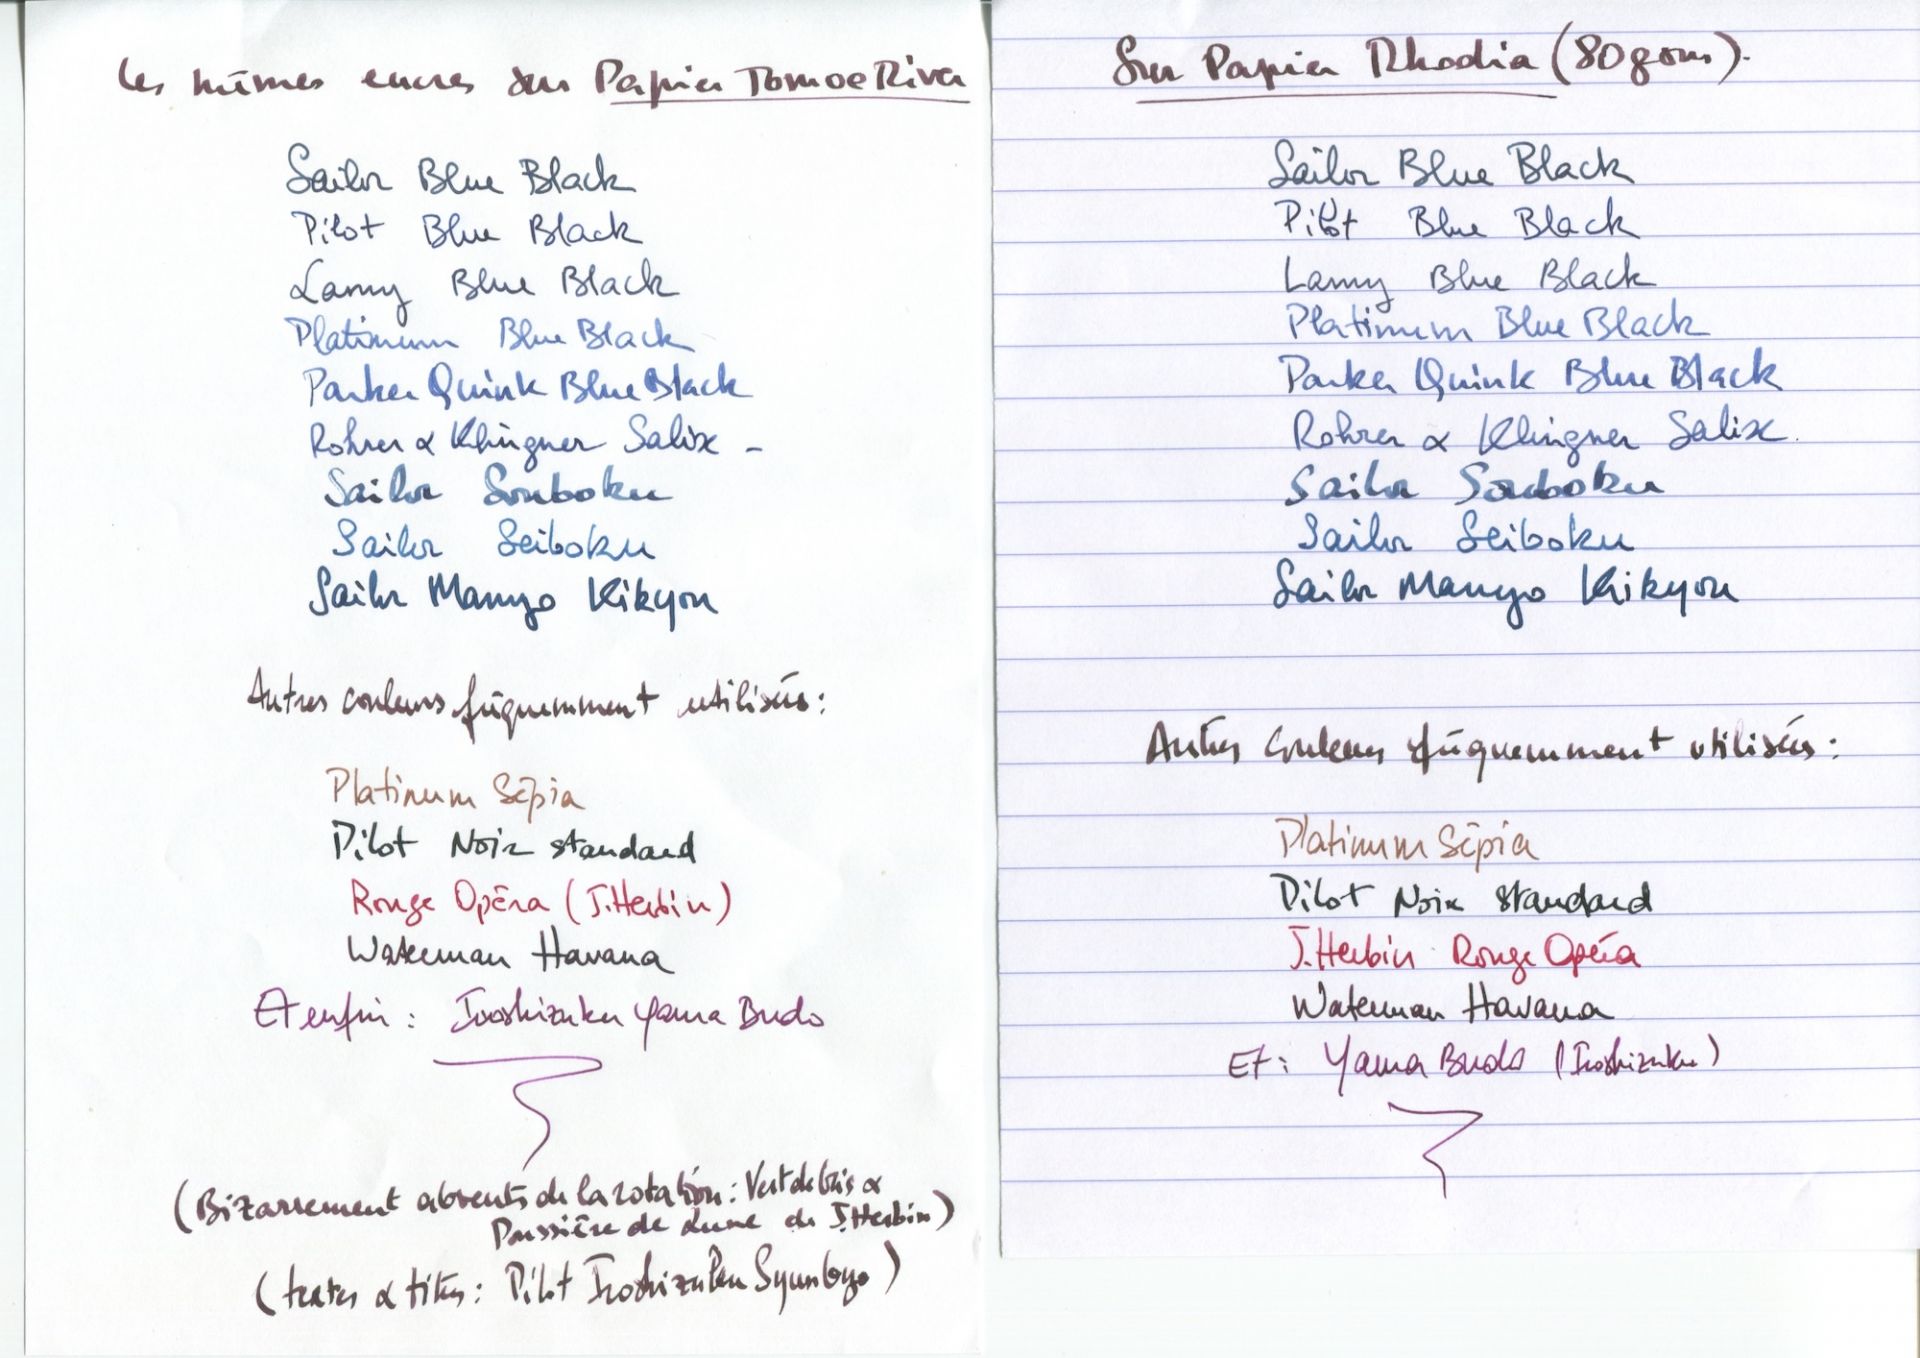 Les mêmes encres sur Papier Tomoe River
Sailor Blue Black
Pilot Blue Black
Lamy Blue Black
Platinum Blue Black
Parker Quink Blue Black
Rohrer & Klingner Salix -
Sailor Souboku
Sailor Seiboku
Sailor Manyo Kikyou
Autres couleurs fréquemment utilisées :
Platinum Sépia
Pilot Noir standard
Rouge Opéra (J.Herbin)
Waterman Havana
Et enfin : Iroshizuku Yama Budo
(Bizarrement absents de la rotation : Vert de Gris &
Poussière de Lune de J.Herbin)
(textes & titres : Pilot Iroshizuku SyunGyo)
Sur Papier Rhodia (80 gsm).
Sailor Blue Black
Pilot Blue Black
Lamy Blue Black
Platinum Blue Black
Parker Quink Blue Black
Rohrer & Klingner Salix.
Sailor Souboku
Sailor Seiboku
Sailor Manyo Kikyou
Autres couleurs fréquemment utilisées :
Platinum Sépia
Pilot Noir standard
J.Herbin Rouge Opéra
Waterman Havana
Et : Yama Budo (Iroshizuku)